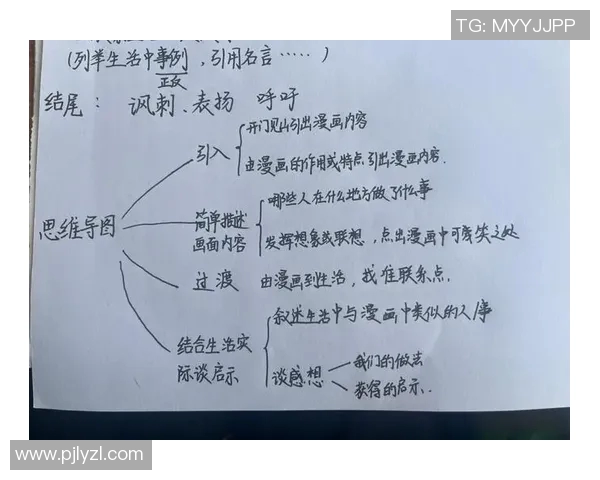 TG: MYYJJPP
(列举生活中事例，引用名言……)
正反
结尾： 讽刺、表扬 呼吁
思维导图
引入
开门见山引出漫画内容
由漫画的作用或特点引出漫画内容.
简单描述
画面内容
哪些人在什么地方做了什么事
发挥想象或联想，点出漫画中可笑之处
过渡 由漫画到生活，找准联系点.
结合生活实
际谈启示
叙述生活中与漫画中类似的人事
谈感想
我们的做法
获得的启示.
www.pjlyzl.com